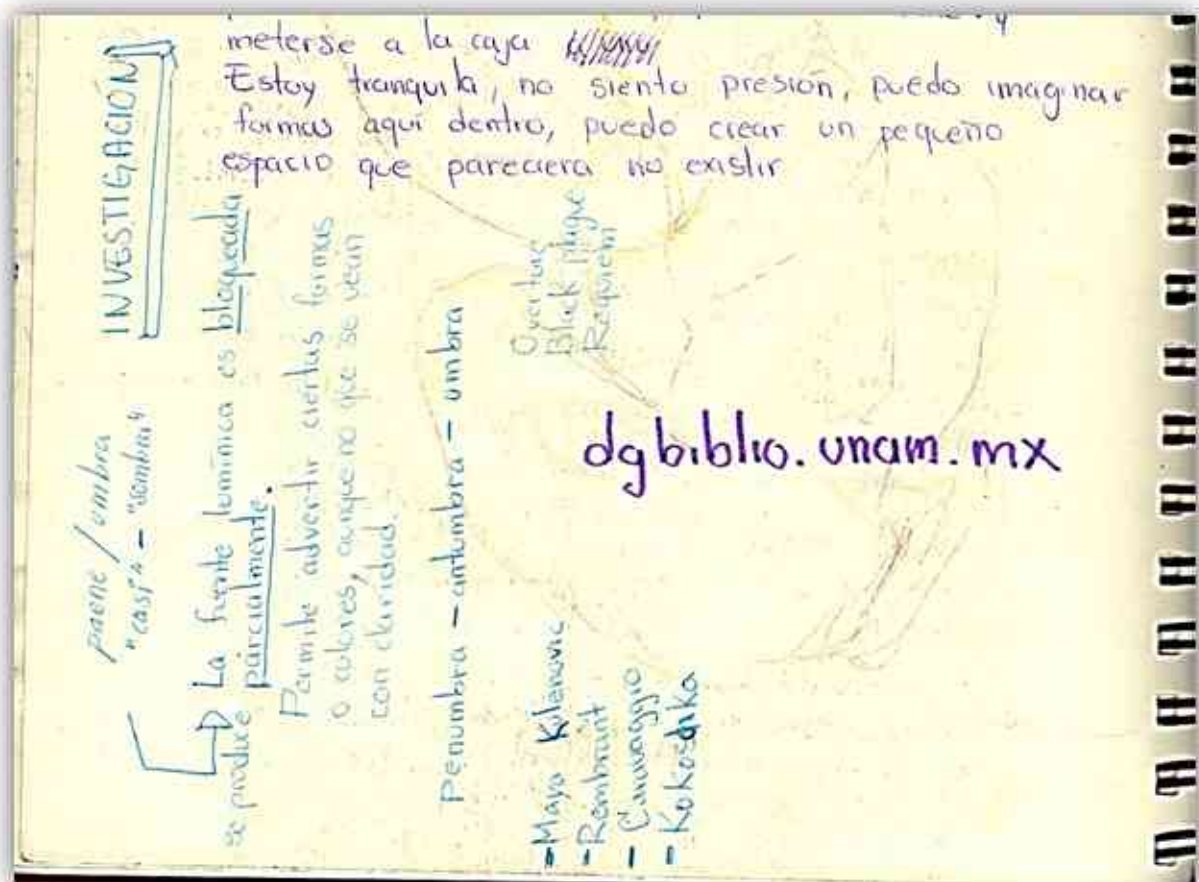 meterse a la caja
Estoy tranquila, no siento presión, puedo imaginar
formas aquí dentro, puedo crear un pequeño
espacio que pareciera no existir
INVESTIGACIÓN
paene / umbra
"casi" - "sombra"
se produce
La fuente lumínica es bloqueada
parcialmente.
Permite advertir ciertas formas
o colores, aunque no que se vean
con claridad.
penumbra - antumbra - umbra
Overture
Black plague
Requiem
- Maya
- Rembrant
- Caravaggio
- Kokoschka
dgbiblio.unam.mx